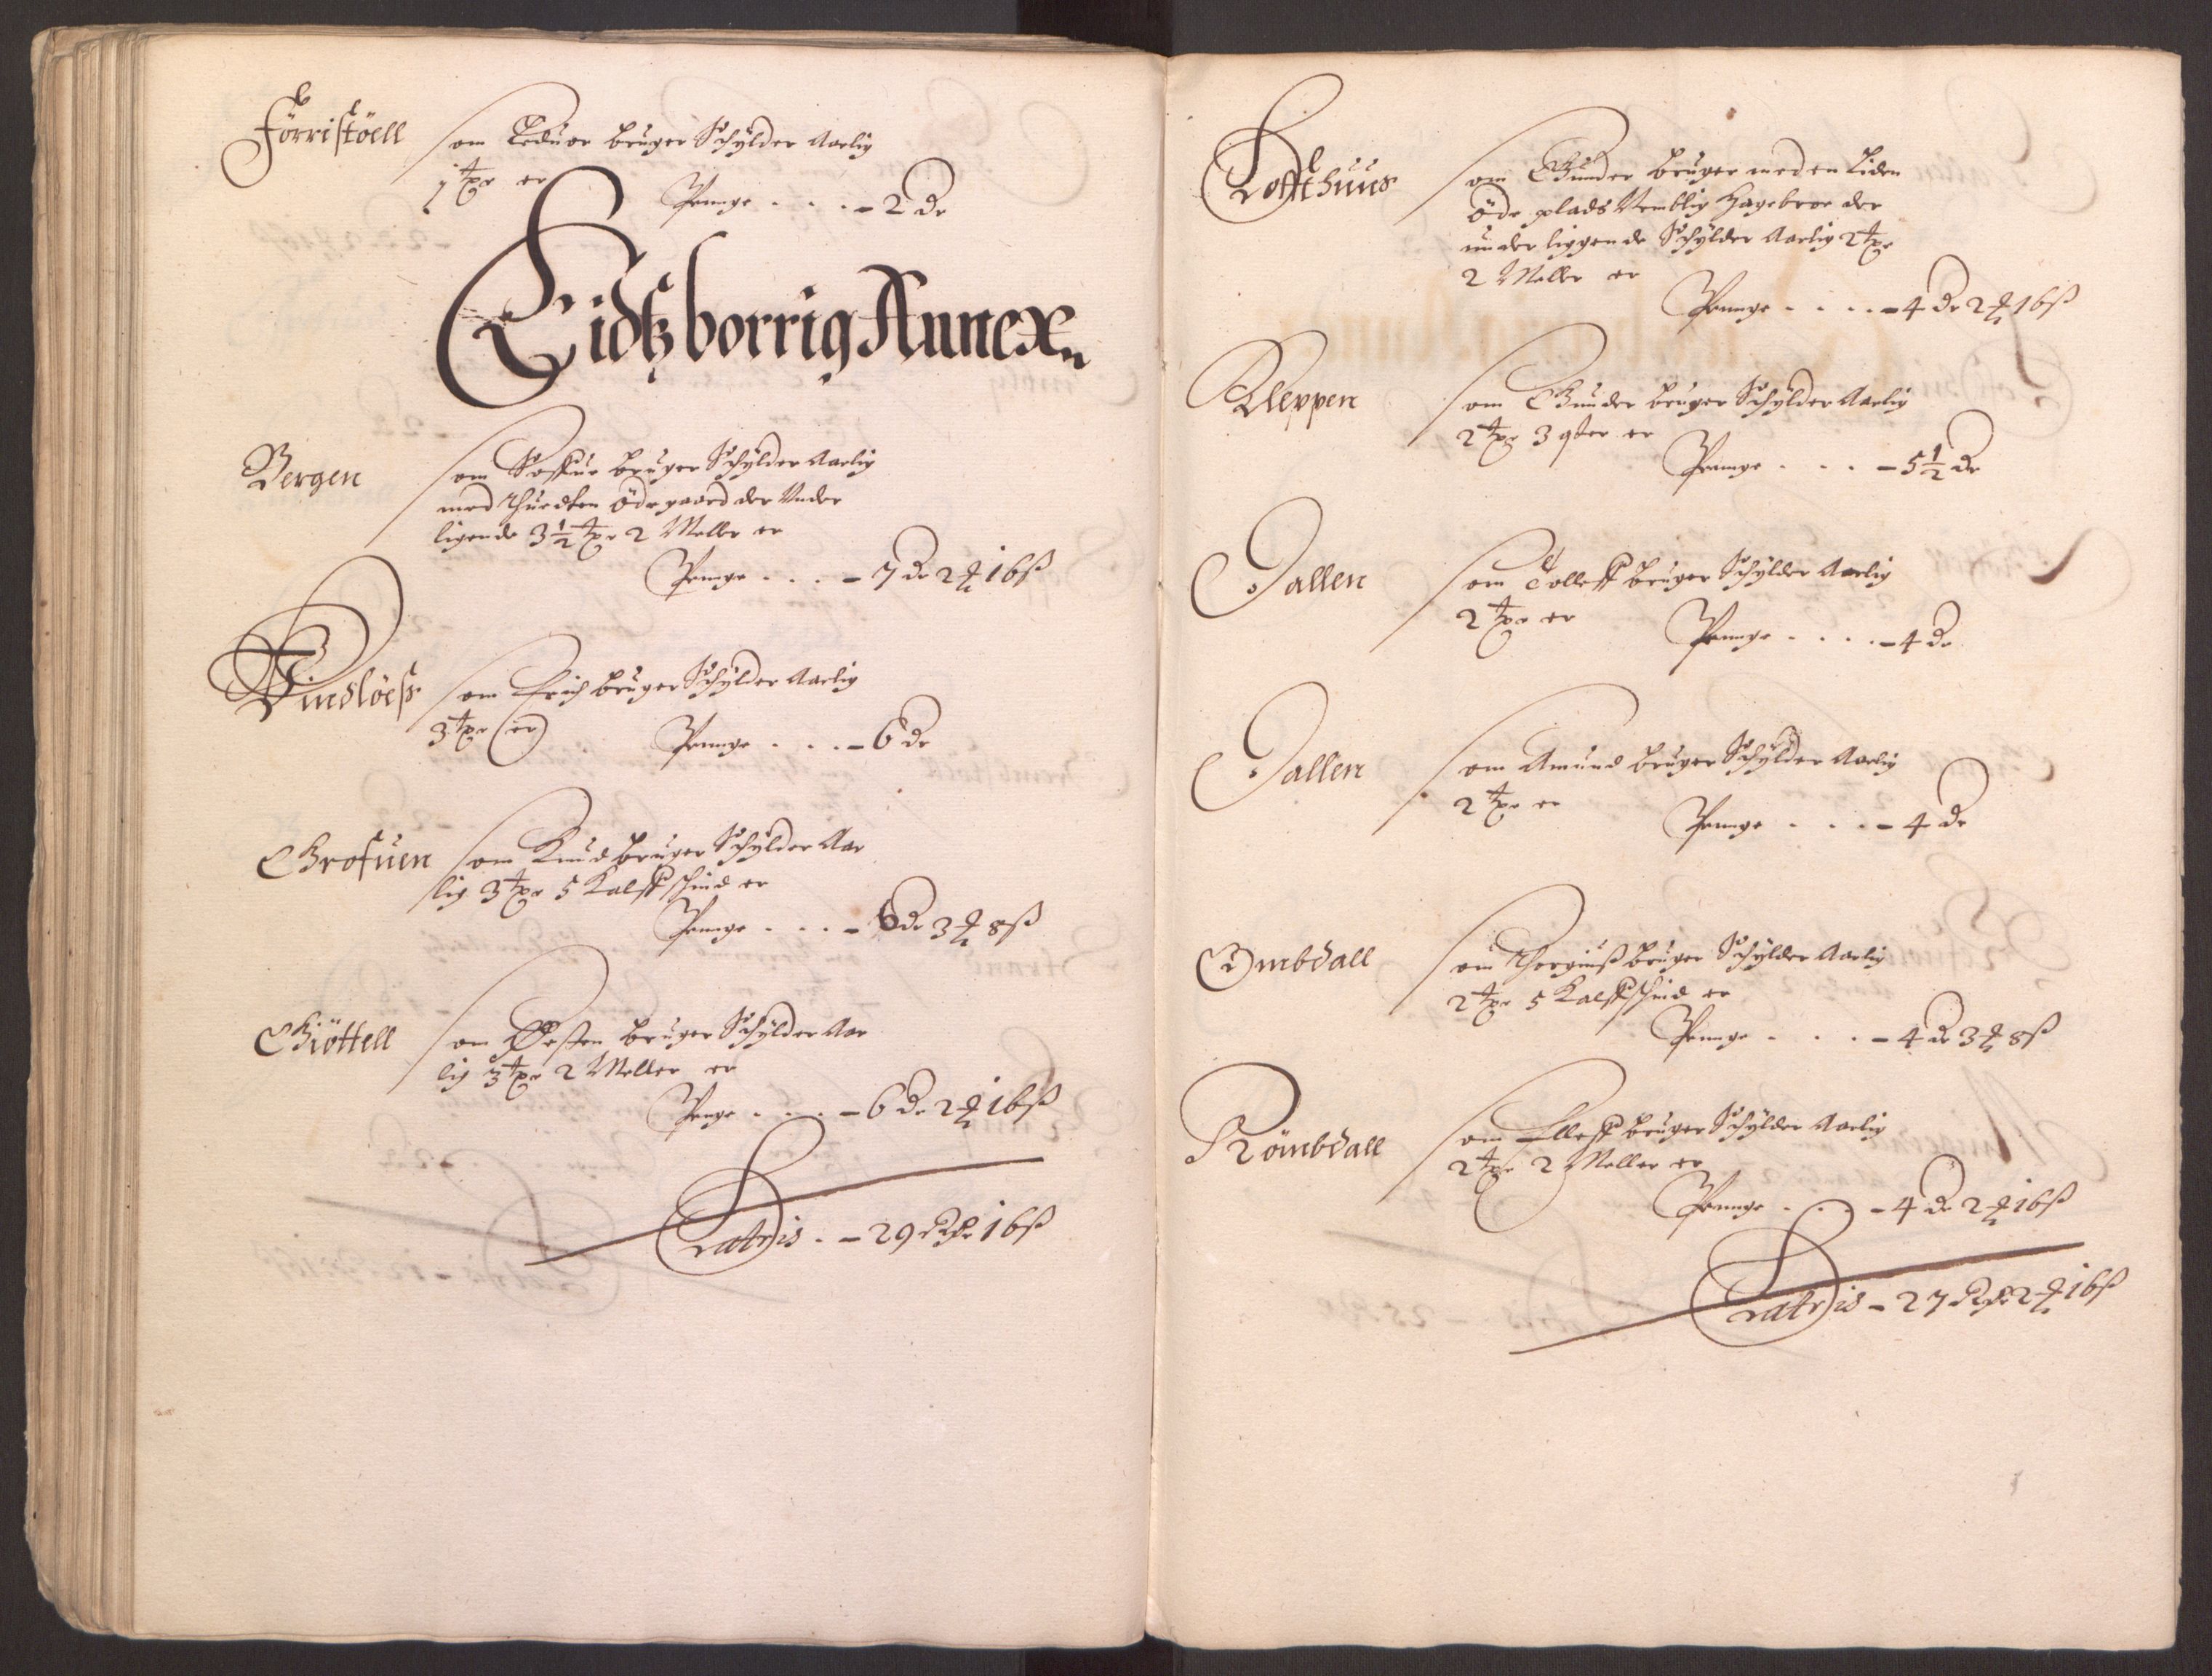 Förristöell som Teduor bruger Schÿlder Aarlig
1 tpr er
Penge - 2 dr
Eidtzborrig Annex
Bergen som Bruger Schÿlder Aarlig
med öde gaard der Under
ligende 3 1/2 tpr 2 Meller er
Penge - 7 dr 2 ꝥ 16 ß
Vindlöeß som Erich bruger Schÿlder Aarlig
3 tpr er Penge - 6 dr
Grofuen som Knud bruger Schÿlder Aar
lig 3 tpr 5 Kalffschind er
Penge - 6 dr 3 ꝥ 8 ß
Giöttell som Østen bruger Schÿlder Aar
lig 3 tpr 2 Meller er
Penge - 6 dr 2 ꝥ 16 ß
Lateris - 29 Rdr 16 ß
Loffthuus som Gunder bruger med en Liden
öde plads Nemblig Hagebroe der
under liggende Schÿlder Aarlig 2 tpr
2 Meller er
Penge - 4 dr 2 ꝥ 16 ß
Kleppen som Gunder bruger Schÿlder Aarlig
2 tpr 3 qter er
Penge - 5 1/2 dr
Dallen som Tolleff bruger Schÿlder Aarlig
2 tpr er
Penge - 4 dr
Dallen som Amund bruger Schÿlder Aarlig
2 tpr er
Penge - 4 dr
Ombdall som Thorgiuß bruger Schÿlder Aarlig
2 tpr 5 Kalffschind er
Penge - 4 dr 3 ꝥ 8 ß
Römbdall som Elleff bruger Schÿlder Aarlig
2 tpr 2 Meller er
Penge - 4 dr 2 ꝥ 16 ß
Lateris - 27 Rdr 2 ꝥ 16 ß